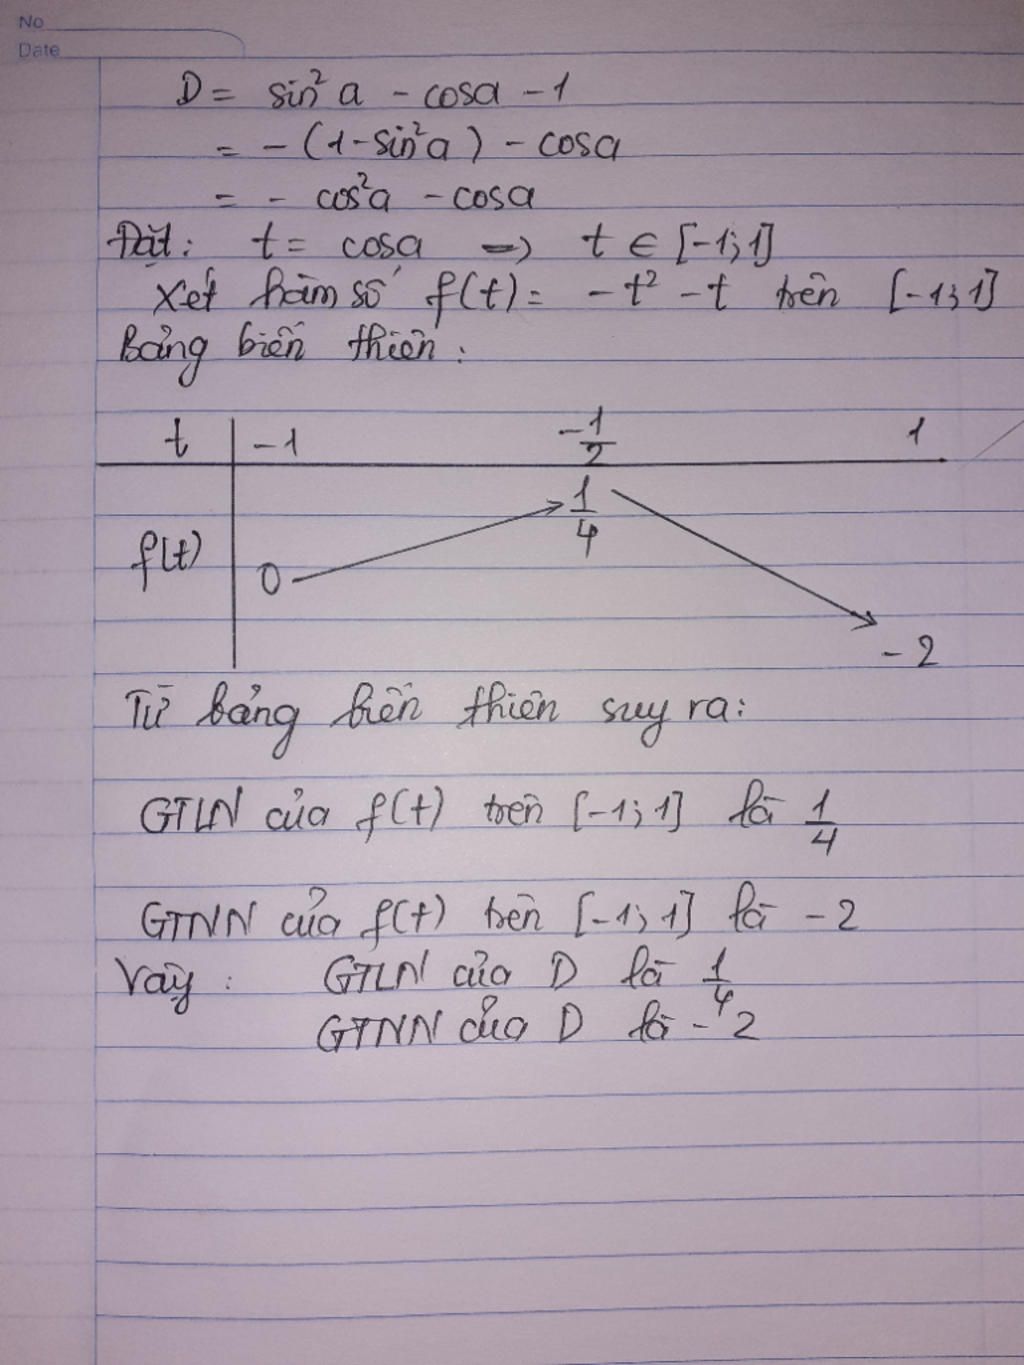 No
Date
D = sin²a - cosa - 1
= - (1 - sin²a) - cosa
= - cos²a - cosa
Đặt: t = cosa => t ∈ [-1; 1]
Xét hàm số f(t) = -t² - t trên [-1; 1]
Bảng biến thiên:
t -1 -1/2 1
f(t) 0 1/4 -2
Từ bảng biến thiên suy ra:
GTLN của f(t) trên [-1; 1] là 1/4
GTNN của f(t) trên [-1; 1] là -2
Vậy: GTLN của D là 1/4
GTNN của D là -2